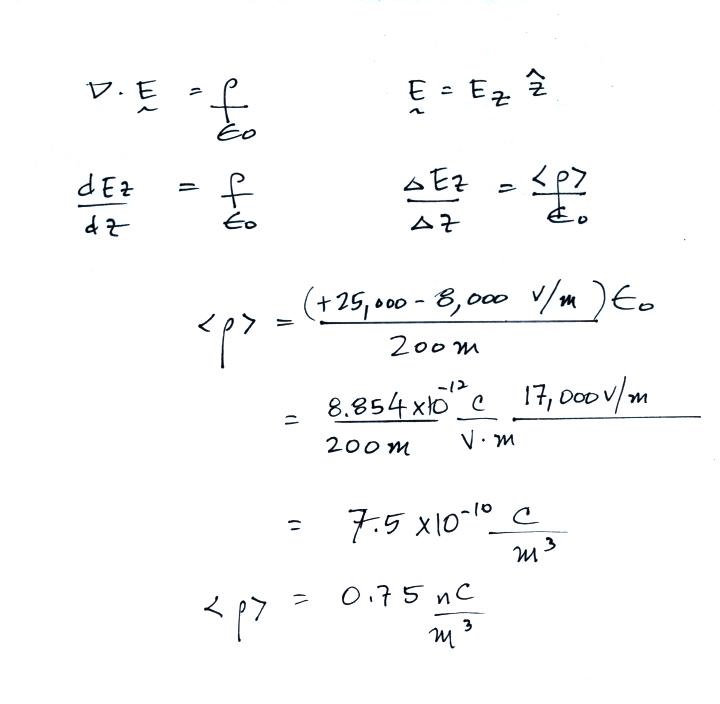 ∇ · E = ρ/ϵ0    E = Ez ẑ
dEz/dz = ρ/ϵ0    ΔEz/Δz = <ρ>/ϵ0
<ρ> = (+25,000 - 8,000 V/m) ϵ0 / 200 m
= 8.854 x10^-12 / 200 m  C / V·m  17,000 V/m
= 7.5 x10^-10 C/m^3
<ρ> = 0.75 nC/m^3